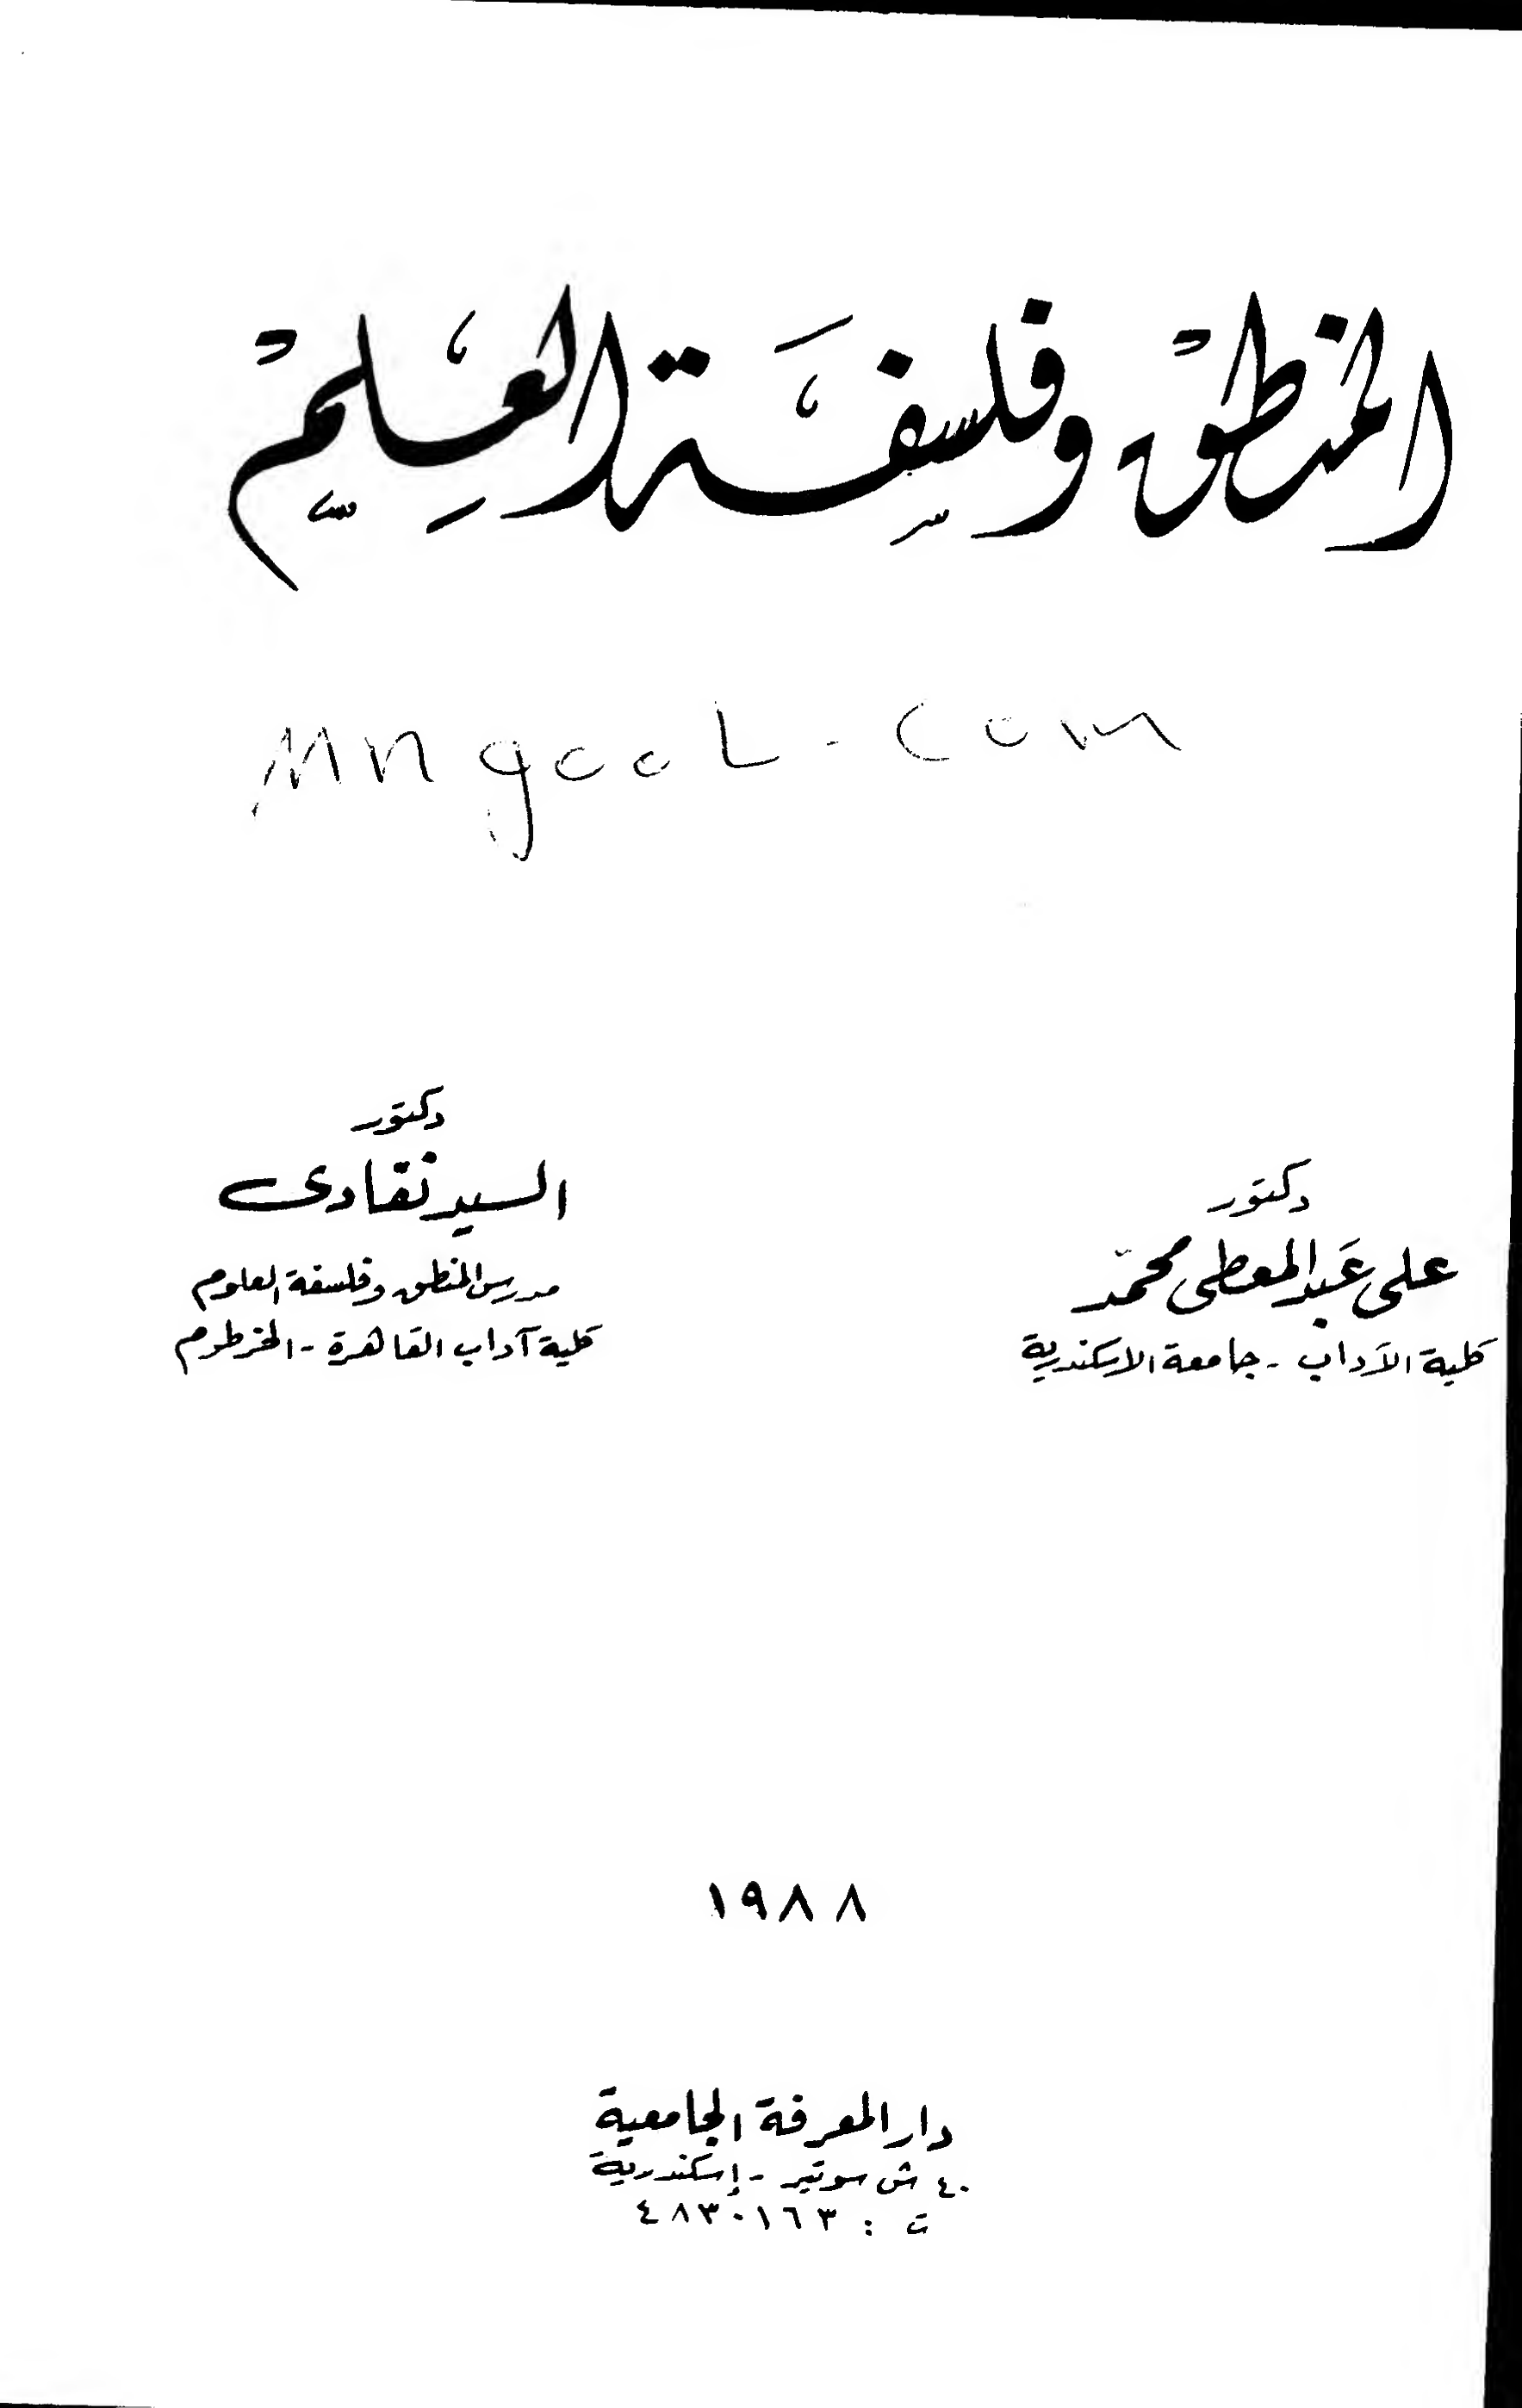 المنطق وفلسفة العلم
Mngool.com
دكتور
على عبد المعطى محمد
كلية الآداب - جامعة الاسكندرية
دكتور
السيد نفادى
مدرس المنطق وفلسفة العلوم
كلية آداب القاهرة - الخرطوم
١٩٨٨
دار المعرفة الجامعية
٤٠ ش سوتير - إسكندرية
ت : ٤٨٣٠١٦٣